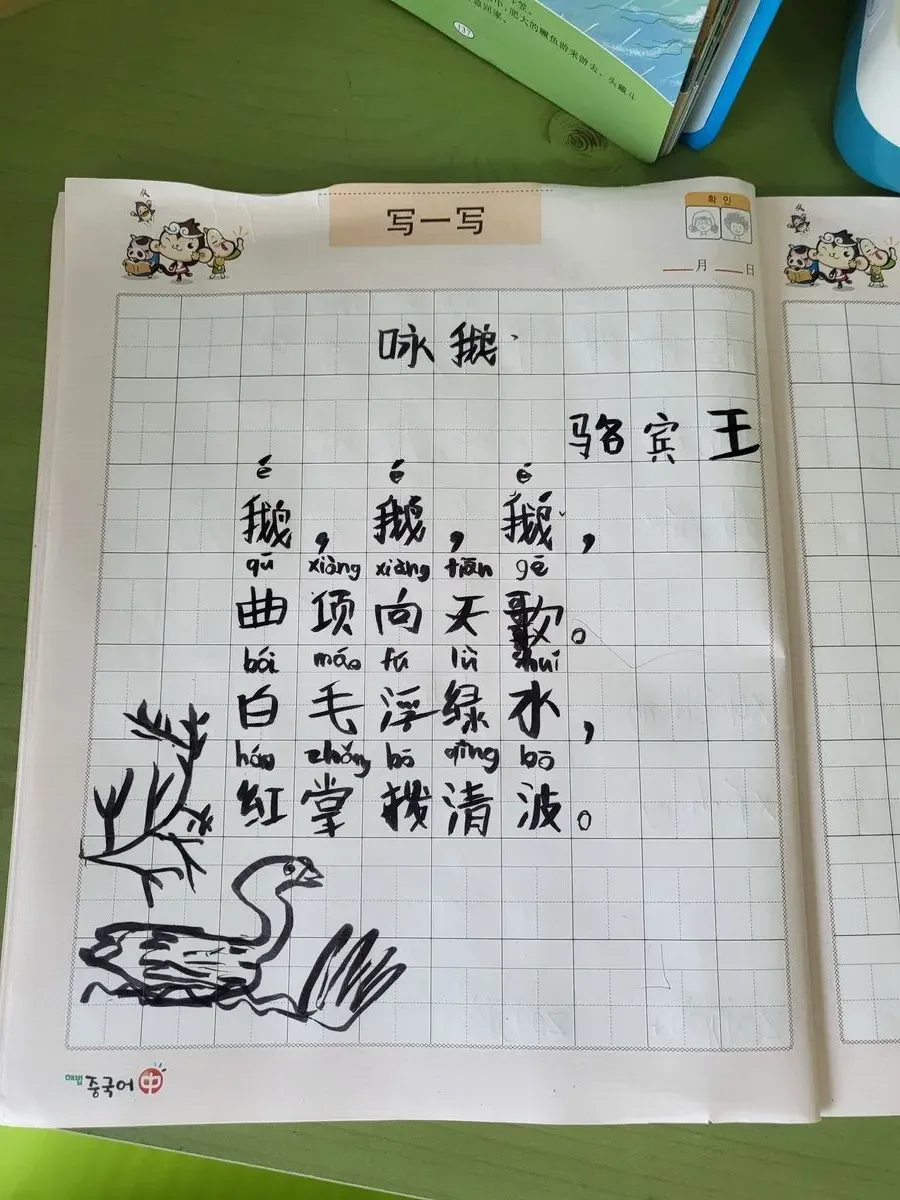 137
写一写
확인
月 日
咏鹅
骆宾王
é é é
鹅，鹅，鹅，
qū xiàng xiàng tiān gē
曲项向天歌。
bái máo fú lǜ shuǐ
白毛浮绿水，
hóng zhǎng bō qīng bō
红掌拨清波。
마법 중국어 中